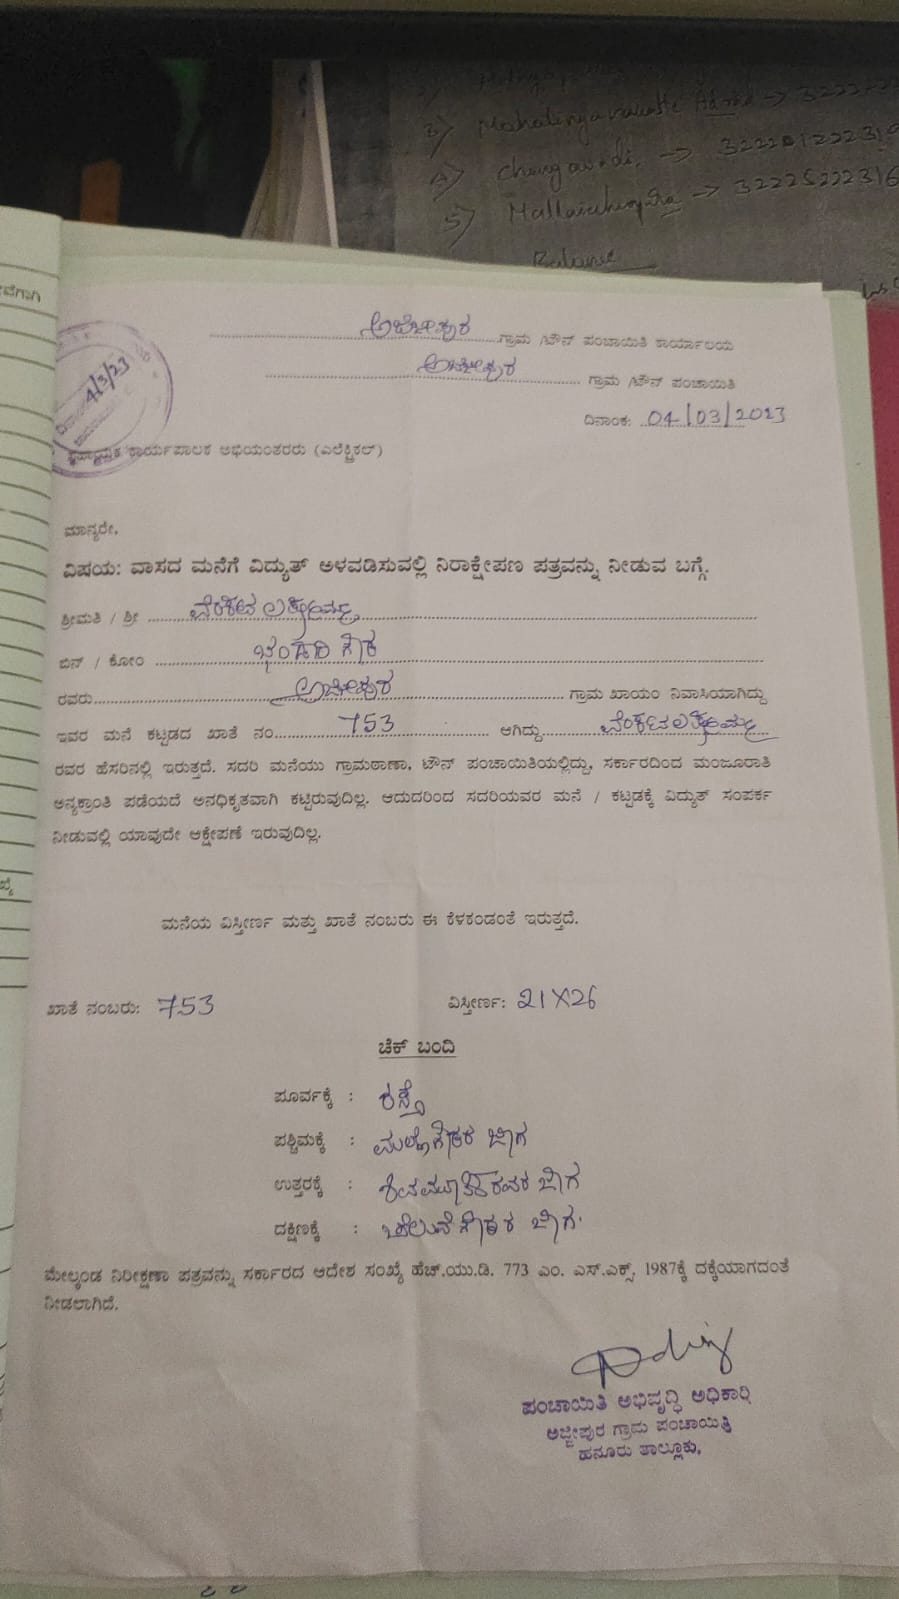 3)
4) Changavadi. → 322201222319
5) → 32225222316
Balance
ಅಜ್ಜೀಪುರ ಗ್ರಾಮ /ಟೌನ್ ಪಂಚಾಯಿತಿ ಕಾರ್ಯಾಲಯ
ಅಜ್ಜೀಪುರ ಗ್ರಾಮ /ಟೌನ್ ಪಂಚಾಯಿತಿ
4/3/23
ದಿನಾಂಕ: 04/03/2023
ಕಾರ್ಯಪಾಲಕ ಅಭಿಯಂತರರು (ಎಲೆಕ್ಟ್ರಿಕಲ್)
ಮಾನ್ಯರೇ,
ವಿಷಯ: ವಾಸದ ಮನೆಗೆ ವಿದ್ಯುತ್ ಅಳವಡಿಸುವಲ್ಲಿ ನಿರಾಕ್ಷೇಪಣ ಪತ್ರವನ್ನು ನೀಡುವ ಬಗ್ಗೆ.
ಶ್ರೀಮತಿ / ಶ್ರೀ ವೆಂಕಟಲಕ್ಷ್ಮಮ್ಮ
ಬಿನ್ / ಕೋಂ
ರವರು ಅಜ್ಜೀಪುರ ಗ್ರಾಮ ಖಾಯಂ ನಿವಾಸಿಯಾಗಿದ್ದು
ಇವರ ಮನೆ ಕಟ್ಟಡದ ಖಾತೆ ನಂ. 753 ಆಗಿದ್ದು ವೆಂಕಟಲಕ್ಷ್ಮಮ್ಮ
ರವರ ಹೆಸರಿನಲ್ಲಿ ಇರುತ್ತದೆ. ಸದರಿ ಮನೆಯು ಗ್ರಾಮಠಾಣಾ, ಟೌನ್ ಪಂಚಾಯಿತಿಯಲ್ಲಿದ್ದು, ಸರ್ಕಾರದಿಂದ ಮಂಜೂರಾತಿ
ಅನ್ಯಕ್ರಾಂತಿ ಪಡೆಯದೆ ಅನಧಿಕೃತವಾಗಿ ಕಟ್ಟಿರುವುದಿಲ್ಲ. ಆದುದರಿಂದ ಸದರಿಯವರ ಮನೆ / ಕಟ್ಟಡಕ್ಕೆ ವಿದ್ಯುತ್ ಸಂಪರ್ಕ
ನೀಡುವಲ್ಲಿ ಯಾವುದೇ ಆಕ್ಷೇಪಣೆ ಇರುವುದಿಲ್ಲ.
ಮನೆಯ ವಿಸ್ತೀರ್ಣ ಮತ್ತು ಖಾತೆ ನಂಬರು ಈ ಕೆಳಕಂಡಂತೆ ಇರುತ್ತದೆ.
ಖಾತೆ ನಂಬರು: 753 ವಿಸ್ತೀರ್ಣ: 21X26
ಚೆಕ್ ಬಂದಿ
ಪೂರ್ವಕ್ಕೆ : ರಸ್ತೆ
ಪಶ್ಚಿಮಕ್ಕೆ : ಜಾಗ
ಉತ್ತರಕ್ಕೆ : ಜಾಗ
ದಕ್ಷಿಣಕ್ಕೆ : ಚೆಲುವೆಗೌಡರ ಜಾಗ.
ಮೇಲ್ಕಂಡ ನಿರೀಕ್ಷಣಾ ಪತ್ರವನ್ನು ಸರ್ಕಾರದ ಆದೇಶ ಸಂಖ್ಯೆ ಹೆಚ್.ಯು.ಡಿ. 773 ಎಂ. ಎಸ್.ಎಕ್ಸ್, 1987ಕ್ಕೆ ದಕ್ಕೆಯಾಗದಂತೆ
ನೀಡಲಾಗಿದೆ.
ಪಂಚಾಯಿತಿ ಅಭಿವೃದ್ಧಿ ಅಧಿಕಾರಿ
ಅಜ್ಜೀಪುರ ಗ್ರಾಮ ಪಂಚಾಯಿತ್ತಿ
ಹನೂರು ತಾಲ್ಲೂಕು,